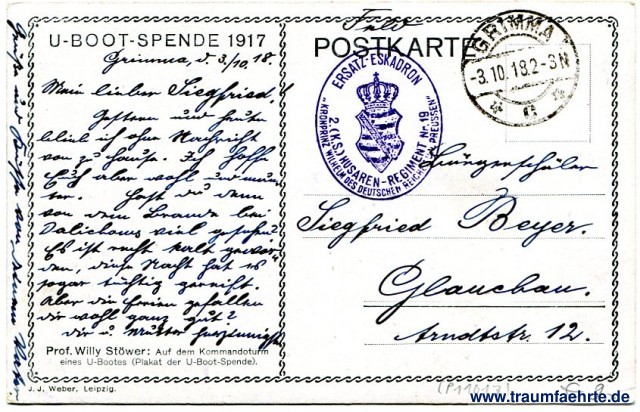 U-BOOT-SPENDE 1917
Grimma, d. 3/10. 18.
Mein lieber Siegfried!
Gestern und heute
blieb ich ohne Nachricht
von zu Hause. Ich hoffe
Euch aber wohl und mun-
ter. Hast du denn
von dem Brande bei
viel gesehen?
Es ist recht kalt gewor-
den, diese Nacht hat es
sogar tüchtig gereift.
Aber die Ferien gefallen
dir wohl ganz gut?
Dir u. Mutter herzinnigste
Grüße und Küsse von Deinem Vater
Prof. Willy Stöwer: Auf dem Kommandoturm
eines U-Bootes (Plakat der U-Boot-Spende).
J. J. Weber, Leipzig.
Feld
POSTKARTE
GRIMMA
-3.10.18.2-3N
ERSATZ-ESKADRON
2. (K.S.) HUSAREN-REGIMENT Nr. 19
"KRONPRINZ WILHELM DES DEUTSCHEN REICHES U. PREUSSEN"
Bürgerschüler
Siegfried Beyer.
Glauchau.
Arndtstr. 12.
www.traumfaehrte.de